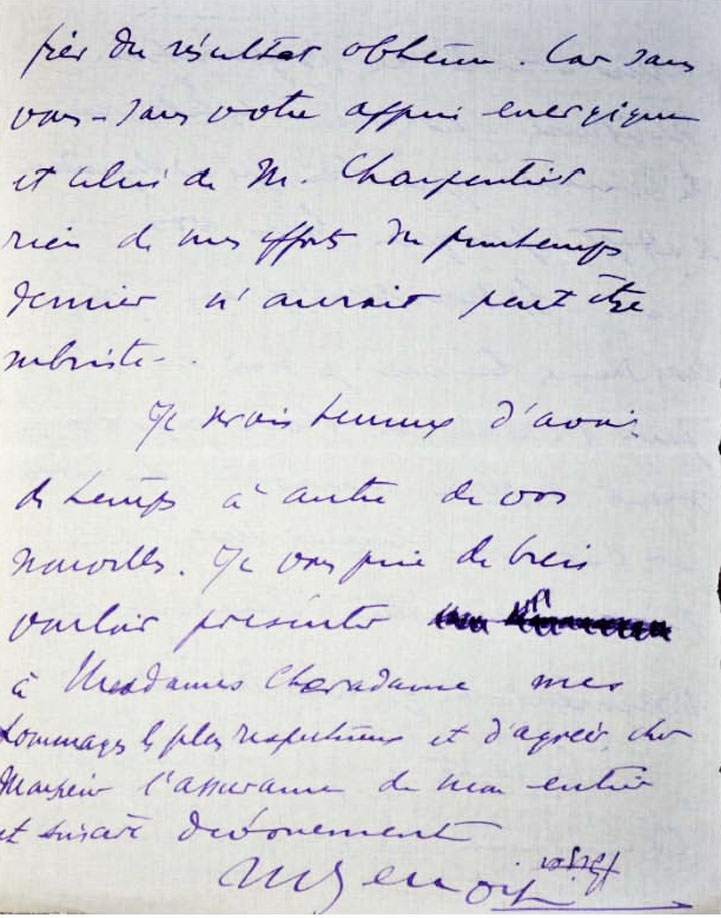 fier du résultat obtenu. Car sans
vous – sans votre appui energique
et celui de M. Charpentier
rien de mes efforts du printemps
dernier n'aurait peut être
subsisté.
Je serais heureux d'avoir
de temps à autre de vos
nouvelles. Je vous prie de bien
vouloir présenter
à Mesdames Cheradame mes
hommages les plus respectueux et d'agréer, cher
Monsieur l'assurance de mon entier
et sincère dévouement